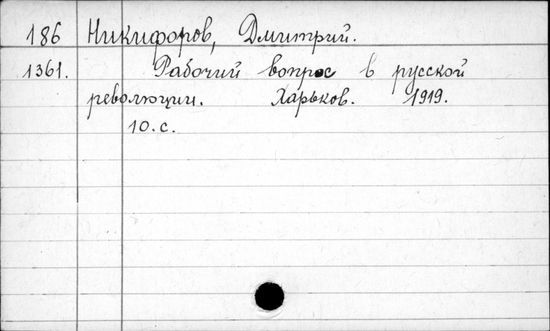 186 Никифоров, Дмитрий.
1361. Рабочий вопрос в русской
революции. Харьков. 1919.
10. с.